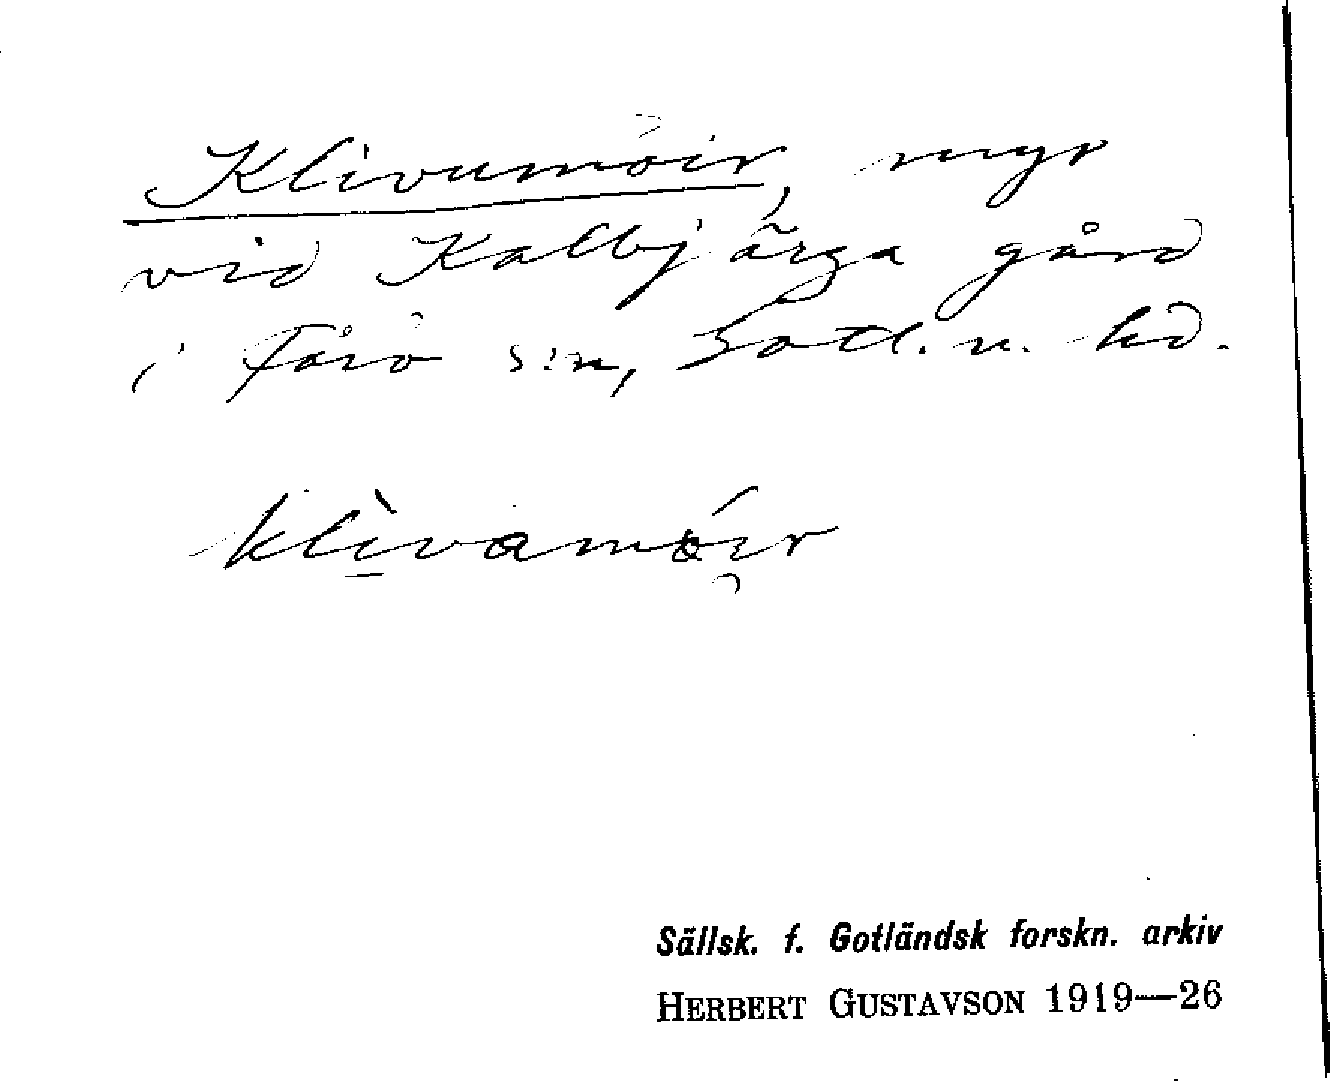 Klivumöir, myr
vid Kalbjärga gård
i Fårö s:n, Gotl. n. hd.
klìvamóir
Sällsk. f. Gotländsk forskn. arkiv
HERBERT GUSTAVSON 1919—26